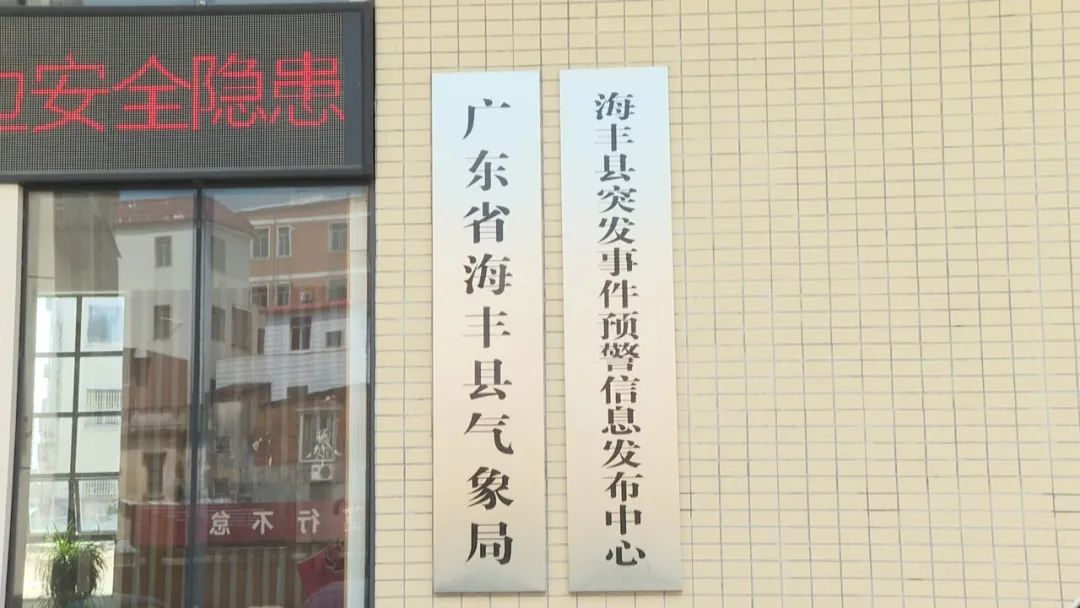 安全隐患
广东省海丰县气象局
海丰县突发事件预警信息发布中心
行不怠